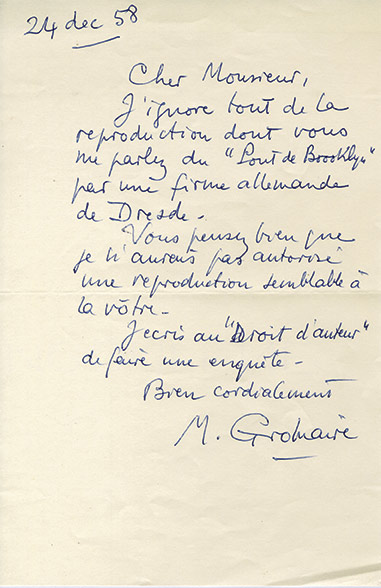 24 dec 58
Cher Monsieur,
J'ignore tout de la
reproduction dont vous
me parlez du "Pont de Brooklyn"
par une firme allemande
de Dresde.
Vous pensez bien que
je n'aurais pas autorisé
une reproduction semblable à
la vôtre.
J'ecris au "Droit d'auteur"
de faire une enquête.
Bien cordialement
M. Gromaire